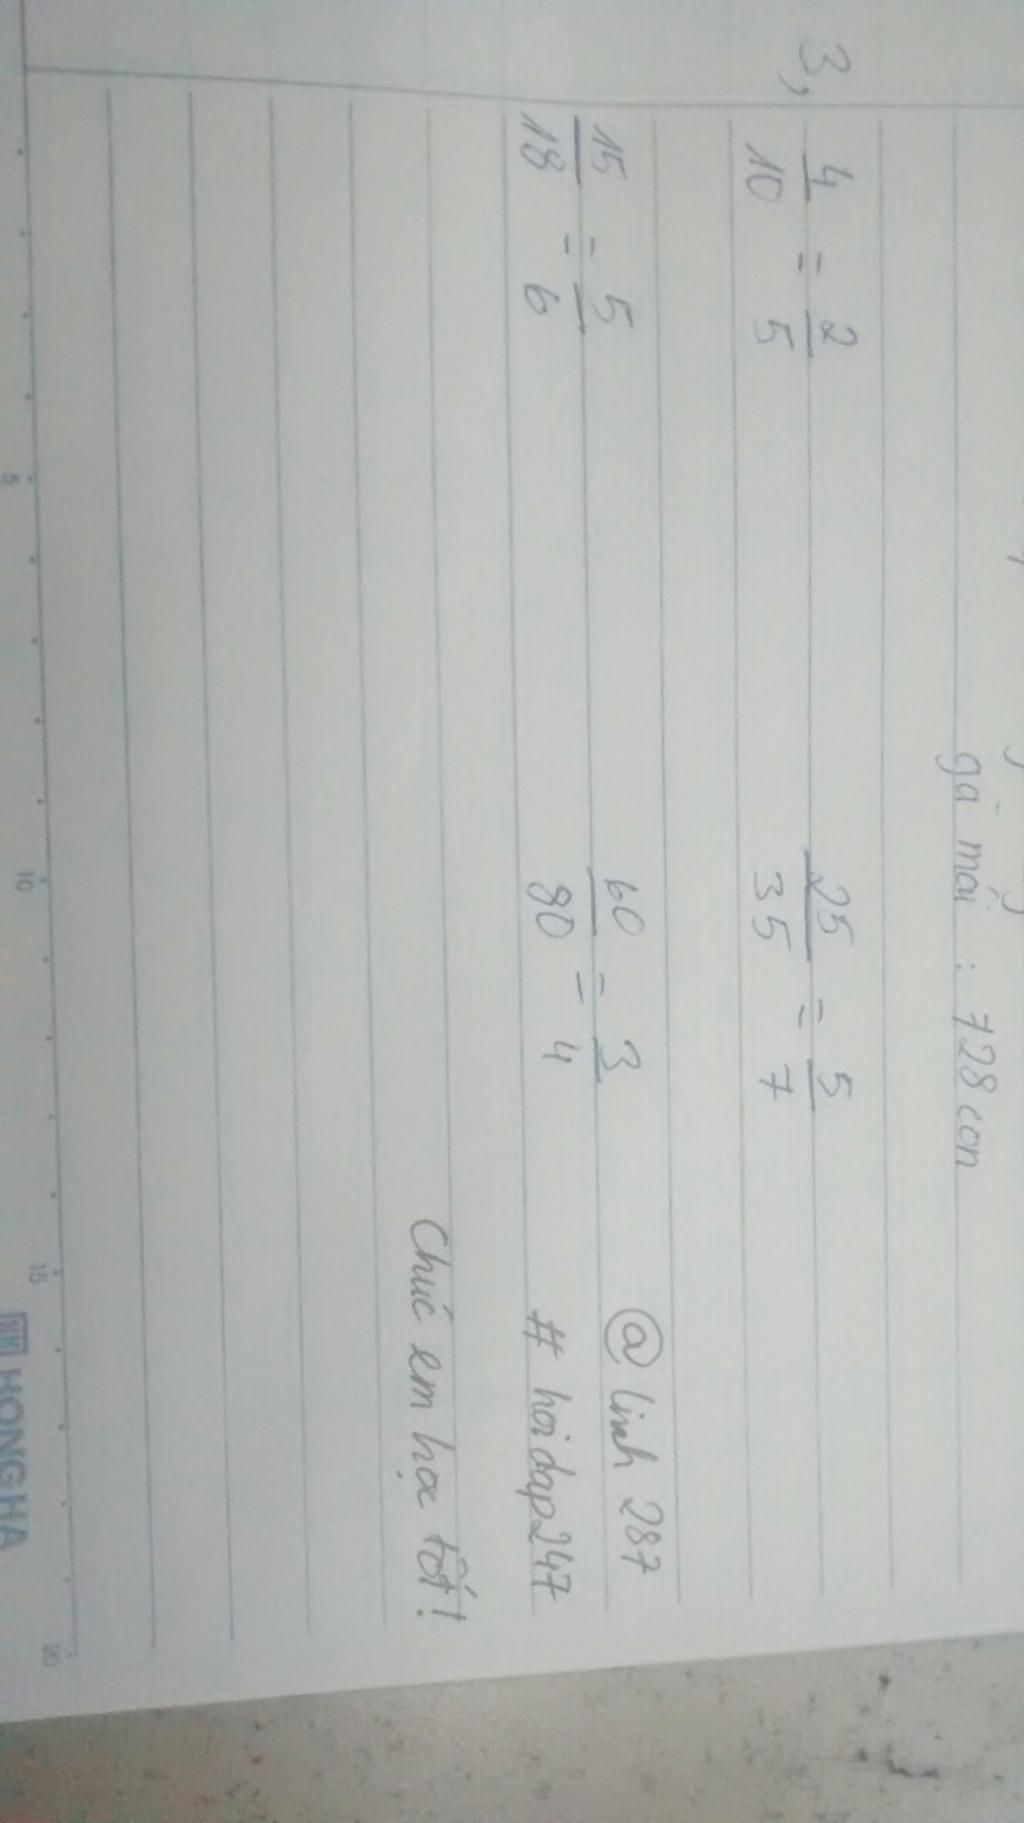 gà mái : 728 con
3, 4/10 = 2/5 25/35 = 5/7
15/18 = 5/6 60/80 = 3/4 @ linh 287
# hoidap247
Chúc em học tốt!
5 10 15 20
HONG HA